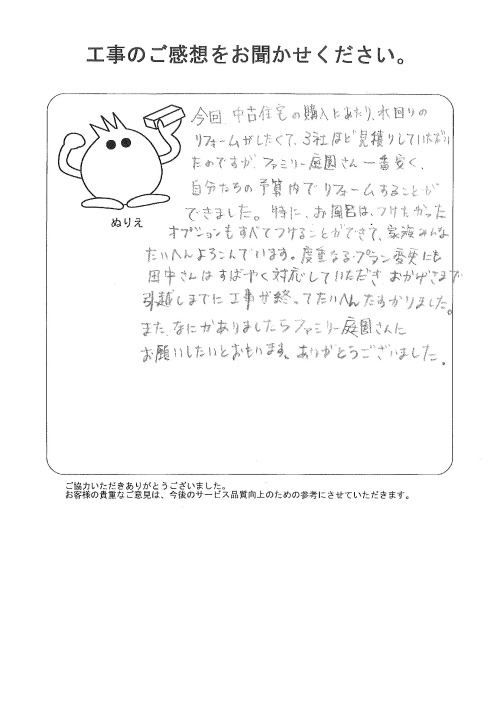 工事のご感想をお聞かせください。
今回、中古住宅の購入にあたり、水回りの
リフォームがしたくて、3社ほど見積りしていただい
たのですが、ファミリー庭園さん一番安く、
自分たちの予算内でリフォームすることが
できました。特に、お風呂は、つけたかった
オプションもすべてつけることができて、家族みんな
たいへんよろこんでいます。度重なるプラン変更にも
田中さんはすばやく対応していただき おかげさまで
引越しまでに工事が終ってたいへんたすかりました。
また、なにかありましたらファミリー庭園さんに
お願いしたいとおもいます。ありがとうございました。
ぬりえ
ご協力いただきありがとうございました。
お客様の貴重なご意見は、今後のサービス品質向上のための参考にさせていただきます。